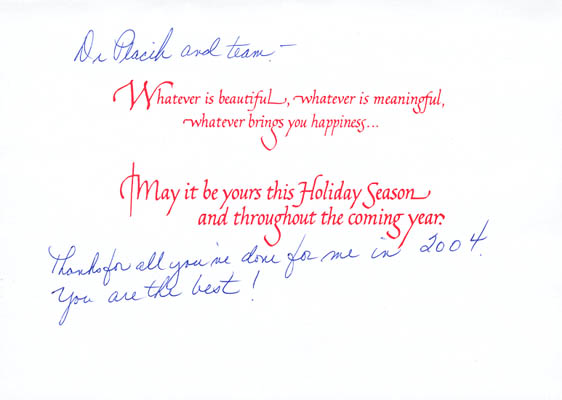 Dr Placik and team –
Whatever is beautiful, whatever is meaningful,
whatever brings you happiness...
May it be yours this Holiday Season
and throughout the coming year.
Thanks for all you've done for me in 2004.
You are the best!